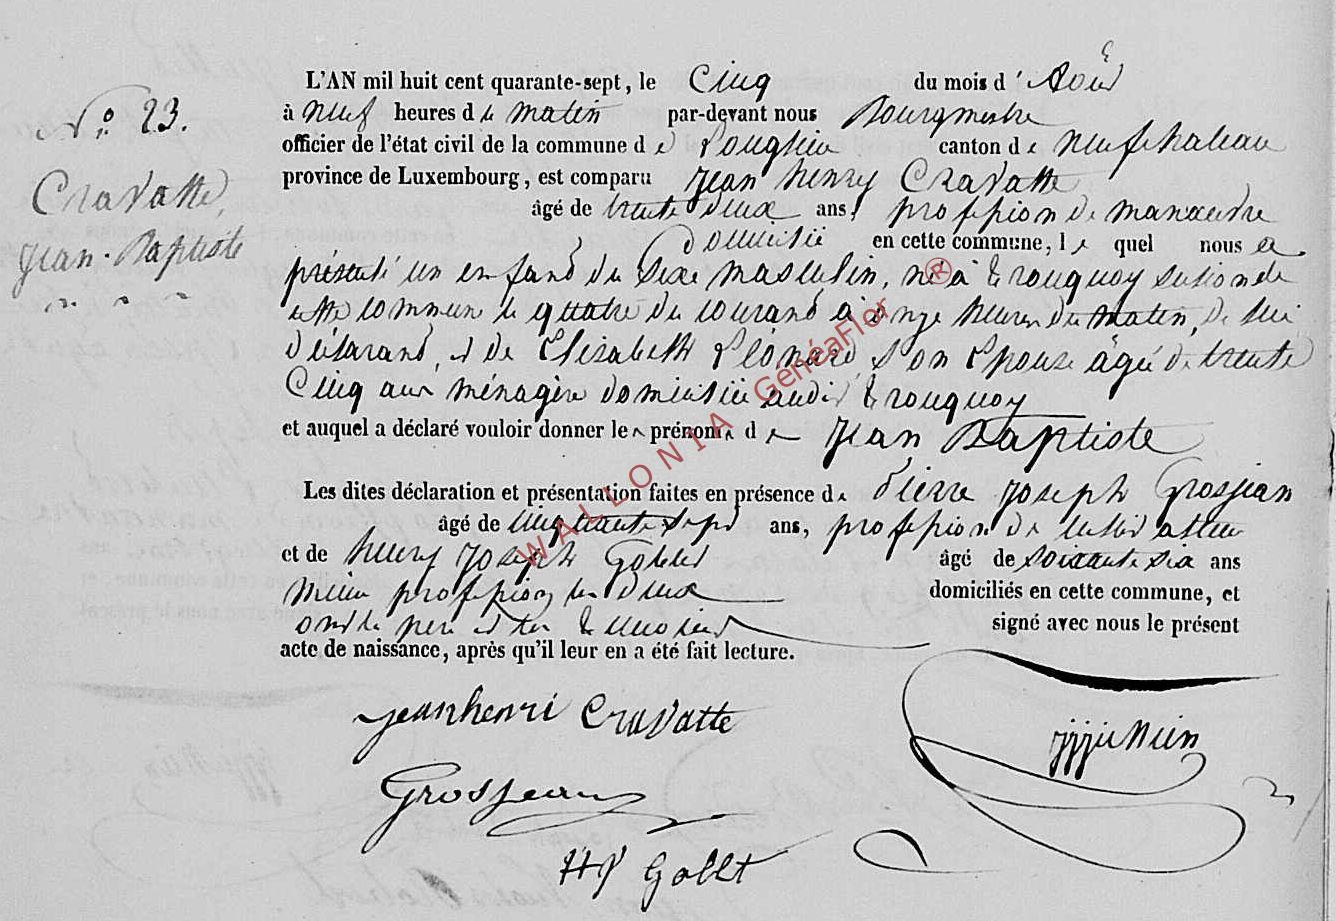 N° 23.
Cravatte,
Jean-Baptiste
L'AN mil huit cent quarante-sept, le Cinq du mois d' Août
à neuf heures de matin par-devant nous Bourgmestre
officier de l'état civil de la commune de Longlier canton de neufchateau
province de Luxembourg, est comparu Jean henry Cravatte
âgé de trente deux ans, profession de manœuvre
Domicilié en cette commune, le quel nous a
présenté un enfand du sexe masculin, né à tronquoy section de
cette commune le quatre du courand à onze heures du matin, de lui
Déclarand, et de Elisabeth Léonard, son Epouse âgée de trente
Cinq ans ménagère domiciliée audit tronquoy
et auquel a déclaré vouloir donner les prénoms de Jean Baptiste
Les dites déclaration et présentation faites en présence de Pierre Joseph Grosjean
âgé de cinquante sept ans, profession de cultivateur
et de henry Joseph Goblet âgé de soixante six ans
meme profession les deux domiciliés en cette commune, et
ont le pere et les temoins signé avec nous le présent
acte de naissance, après qu'il leur en a été fait lecture.
jeanhenri Cravatte
Grosjean
HJ Goblt
WALLONIA GénéaFlor ®